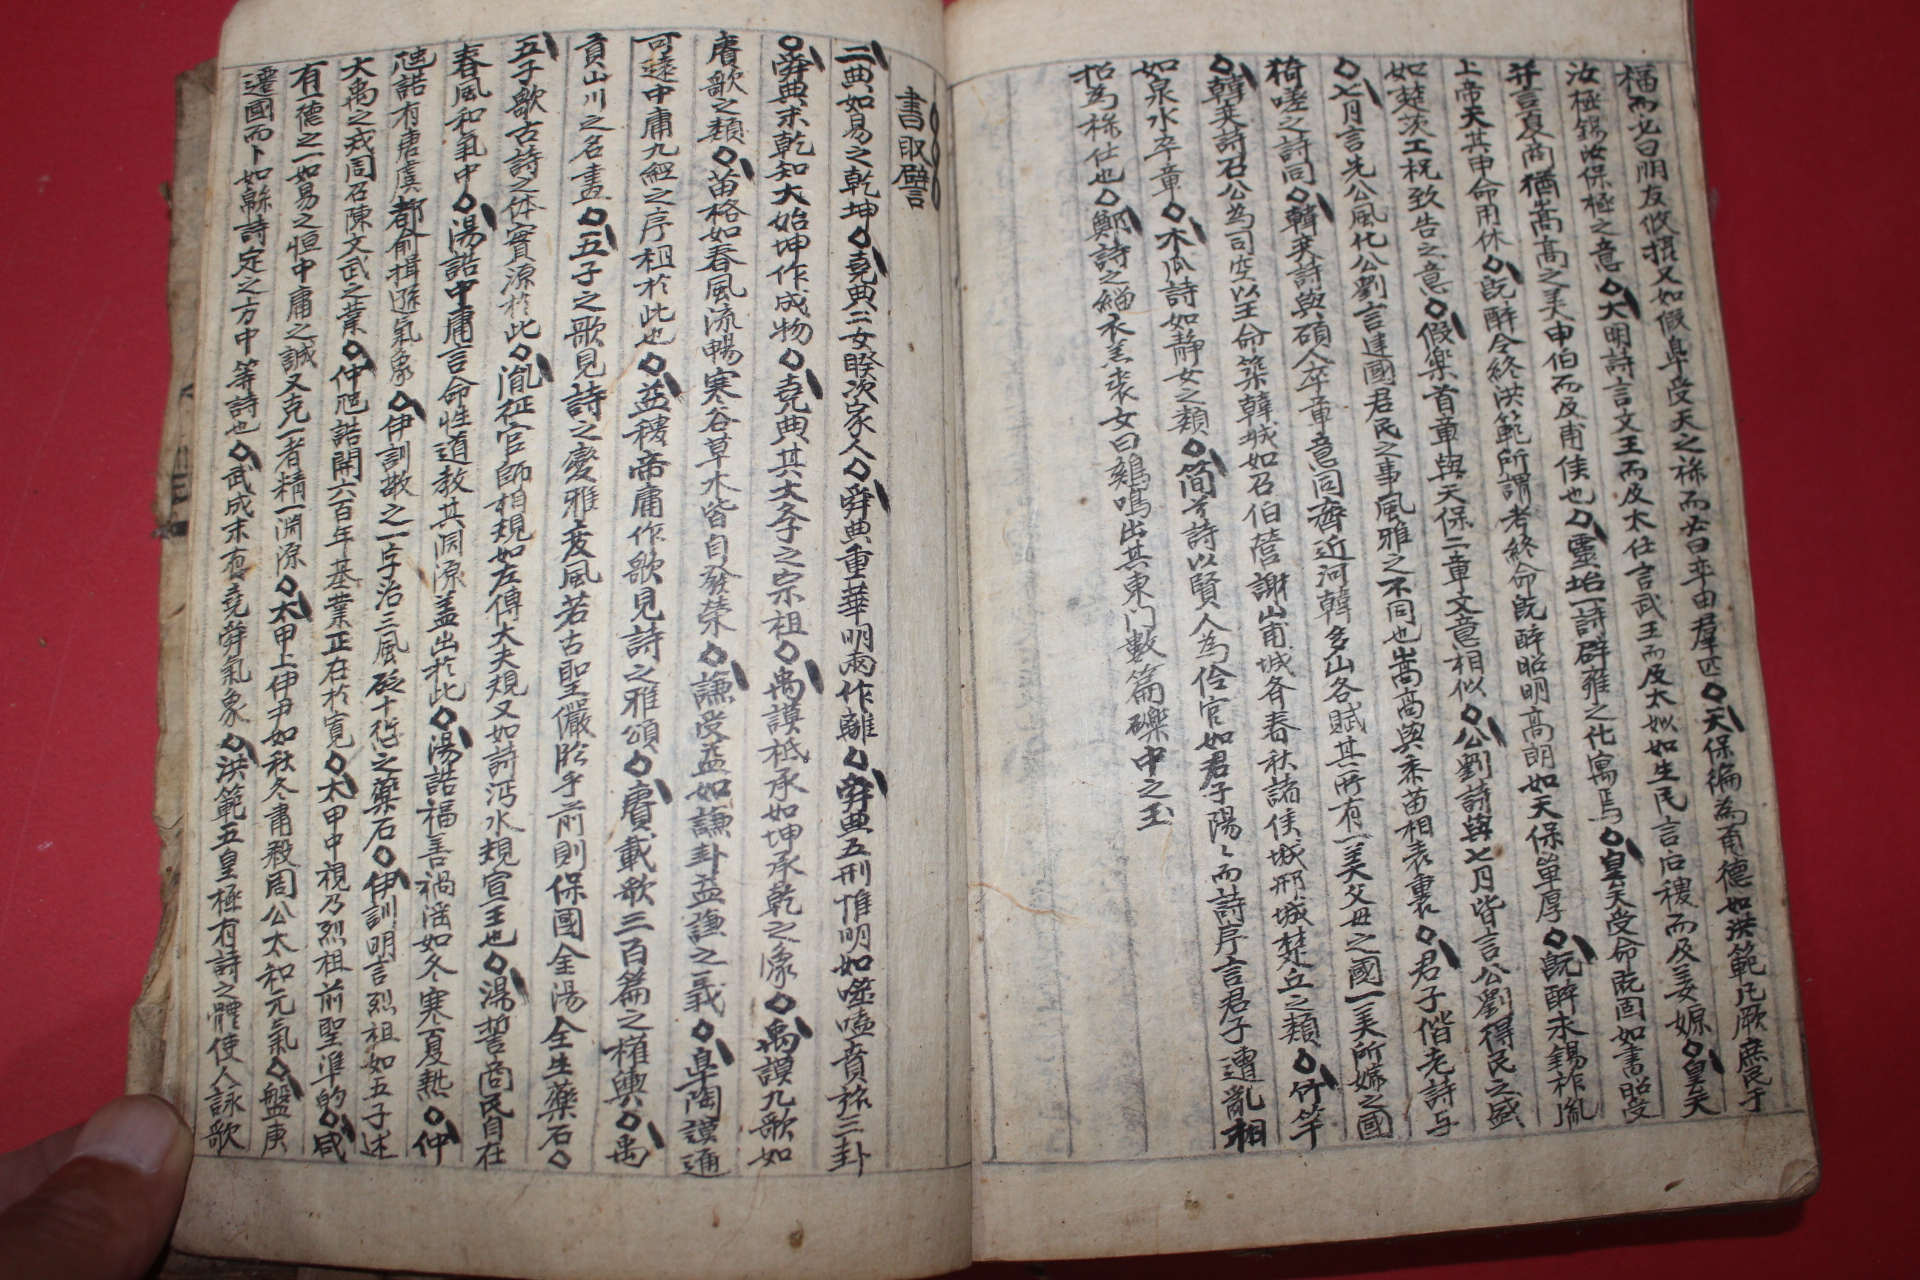 福而必曰朋友攸摂又如假阜受天之祿而必曰率由羣匹◇天保徧為甭德如洪範凡厥庶民于
汝極錫汝保極之意◇大明詩言文王而及太任言武王而及太姒如生民言后稷而及姜嫄◇皇矣
并言夏商猶嵩高之美申伯而反甫侯也◇靈坮詩辟雍之化寓焉◇皇天受命既固如書昭受
上帝天其申命用休◇旣醉令終洪範所謂考終命旣醉昭明高朗如天保單厚◇旣醉永錫祚胤
如楚茨工祝致告之意◇假樂首章與天保二章文意相似◇公劉詩與七月皆言公劉得民之盛
◇七月言先公風化公劉言建國君民之事風雅之不同也嵩高與黍苗相表裏◇君子偕老詩与
猗嗟之詩同◇韓奕詩與碩人卒章意同齊近河韓多山各賦其所有一美父母之國一美所嫁之國
◇韓奕詩召公為司空以王命築韓城如召伯營謝山甫城齊春秋諸侯城邢城楚丘之類◇竹竿
如泉水卒章◇木瓜詩如靜女之類◇简兮詩以賢人為伶官如君子陽〻而詩序言君子遭亂相
招為祿仕也◇鄭詩之緇衣羔裘女曰鷄鳴出其東门數篇礫中之玉
書取譬
二典如易之乾坤◇堯典二女睽次家人◇舜典重華明兩作離◇舜典五刑惟明如噬嗑賁旅三卦
◇舜典末乾知大始坤作成物◇堯典其大夲之宗祖◇禹謨祗承如坤承乾之像◇禹謨九歌如
賡歌之類◇苗格如春風流暢寒谷草木皆自發榮◇謙受益如謙卦益謙之義◇皐陶謨通
可遠中庸九經之序祖於此也◇益稷帝庸作歌見詩之雅頌◇賡載歌三百篇之權輿◇禹
貢山川之名畫◇五子之歌見詩之變雅变風若古聖儼臨乎前則保國全湯全生藥石◇
五子歌古詩之体實源於此◇胤征官師相規如左傳大夫規又如詩沔水規宣王也◇湯誓商民自在
春風和氣中◇湯誥中庸言命性道教其淵源盖出於此◇湯誥福善禍淫如冬寒夏熱◇仲
虺誥有唐虞都俞揖遜氣象◇伊訓敬之一字治三風砭十愆之藥石◇伊訓明言烈祖如五子述
大禹之戒周召陳文武之業◇仲虺誥開六百年基業正在於寬◇太甲中視乃烈祖前聖準的◇咸
有一德之一如易之恒中庸之誠又克一者精一淵源◇太甲上伊尹如秋冬肅殺周公太和元氣◇盤庚
遷國而卜如緜詩定之方中等詩也◇武成末有堯舜氣象◇洪範五皇極有詩之體使人詠歌